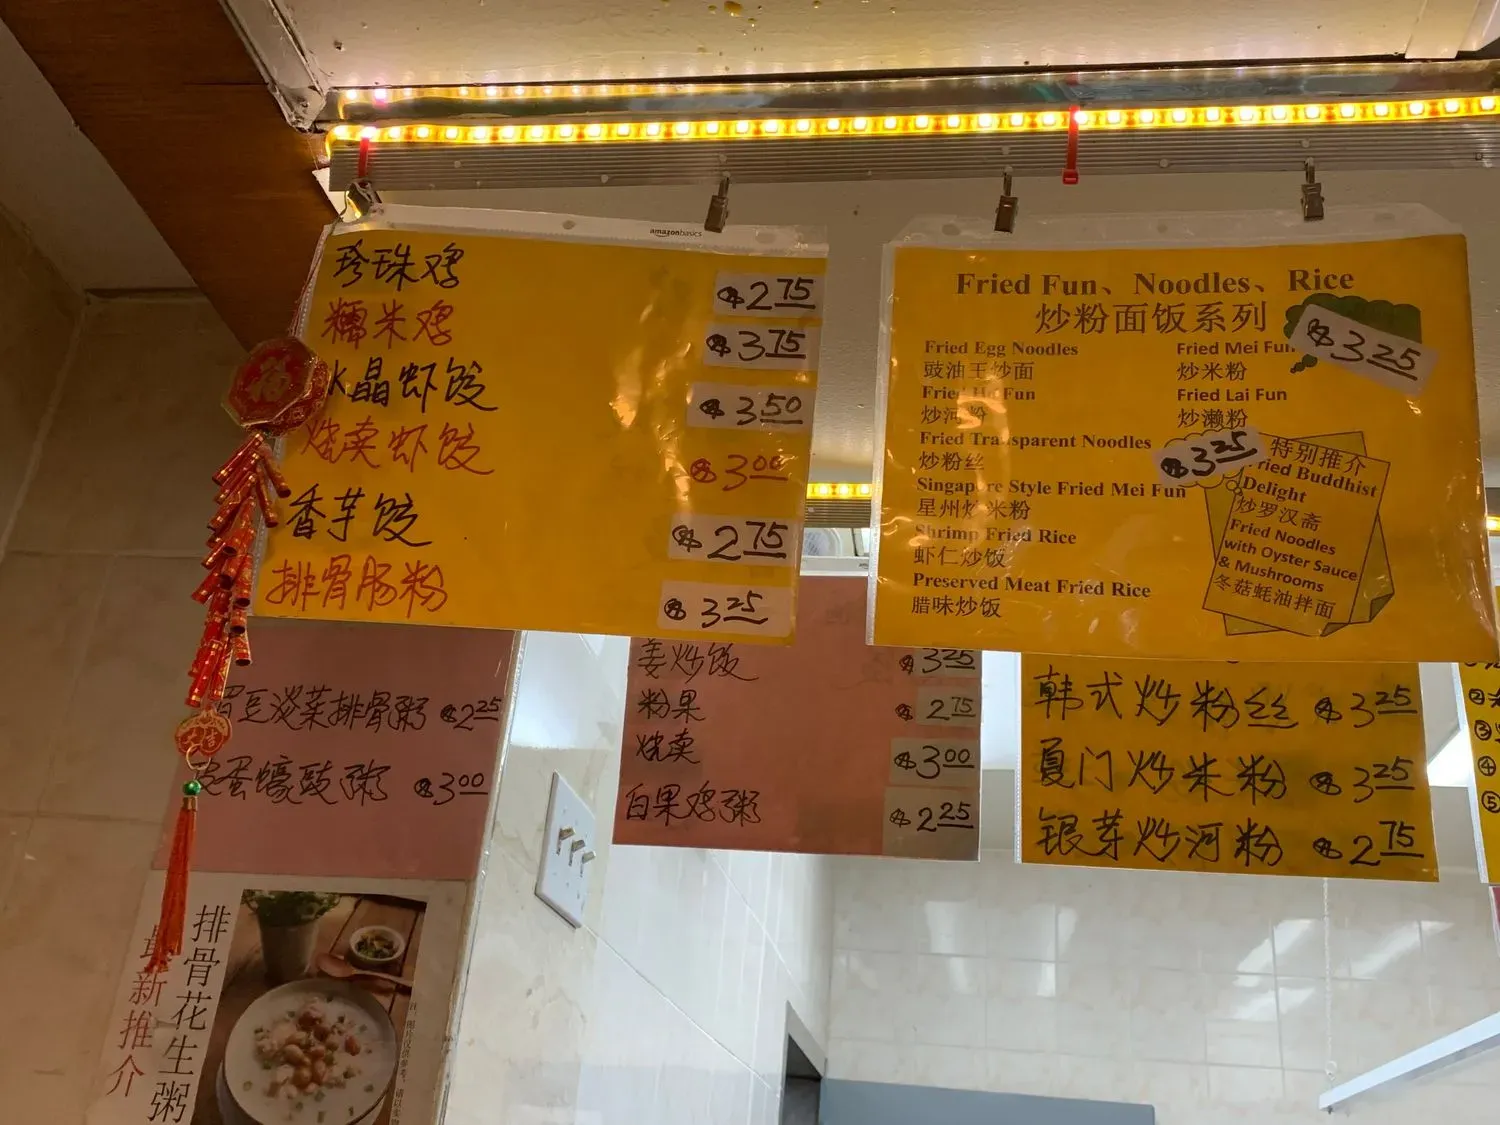 amazonbasics
珍珠鸡 $2.75
糯米鸡 $3.75
水晶虾饺 $3.50
烧卖虾饺 $3.00
香芋饺 $2.75
排骨肠粉 $3.25
Fried Fun、Noodles、Rice
炒粉面饭系列
$3.25
Fried Egg Noodles
豉油王炒面
Fried Ho Fun
炒河粉
Fried Transparent Noodles
炒粉丝
Singapore Style Fried Mei Fun
星州炒米粉
Shrimp Fried Rice
虾仁炒饭
Preserved Meat Fried Rice
腊味炒饭
Fried Mei Fun
炒米粉
Fried Lai Fun
炒濑粉
$3.25
特别推介
Fried Buddhist
Delight
炒罗汉斋
Fried Noodles
with Oyster Sauce
& Mushrooms
冬菇蚝油拌面
眉豆淡菜排骨粥 $2.25
皮蛋蠔豉粥 $3.00
姜炒饭 $3.25
粉果 $2.75
烧卖 $3.00
白果鸡粥 $2.25
韩式炒粉丝 $3.25
夏门炒米粉 $3.25
银芽炒河粉 $2.75
②
③
④
⑤
排骨花生粥
最新推介